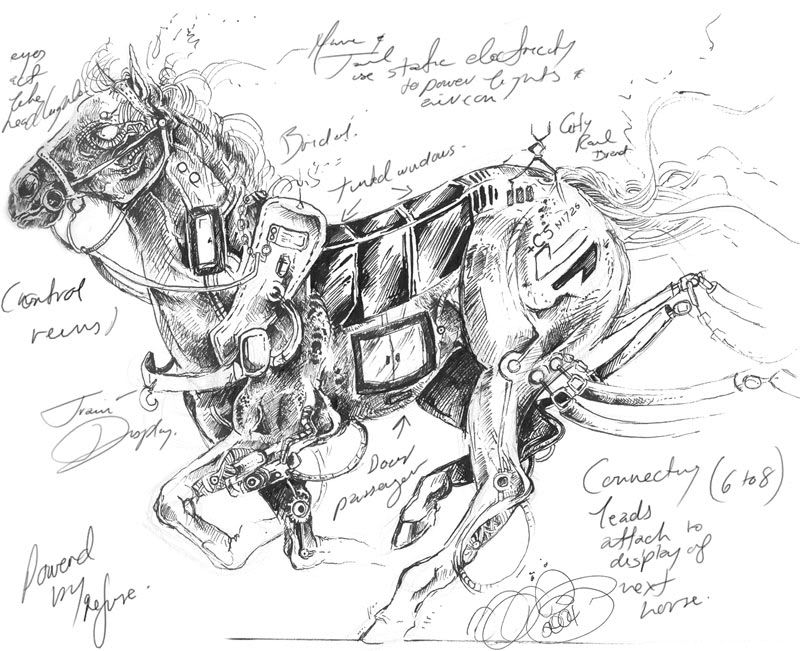 eyes
act
like
headlights
Mane &
Tail
use static electricity
to power lights &
aircon
Bridal.
tinted windows.
City
Rail
N1726
(Control
reins)
Train
Display.
Door
passenger
Connecting (6 to 8)
leads
attach to
display of
next
horse.
Powered
by
refuse.